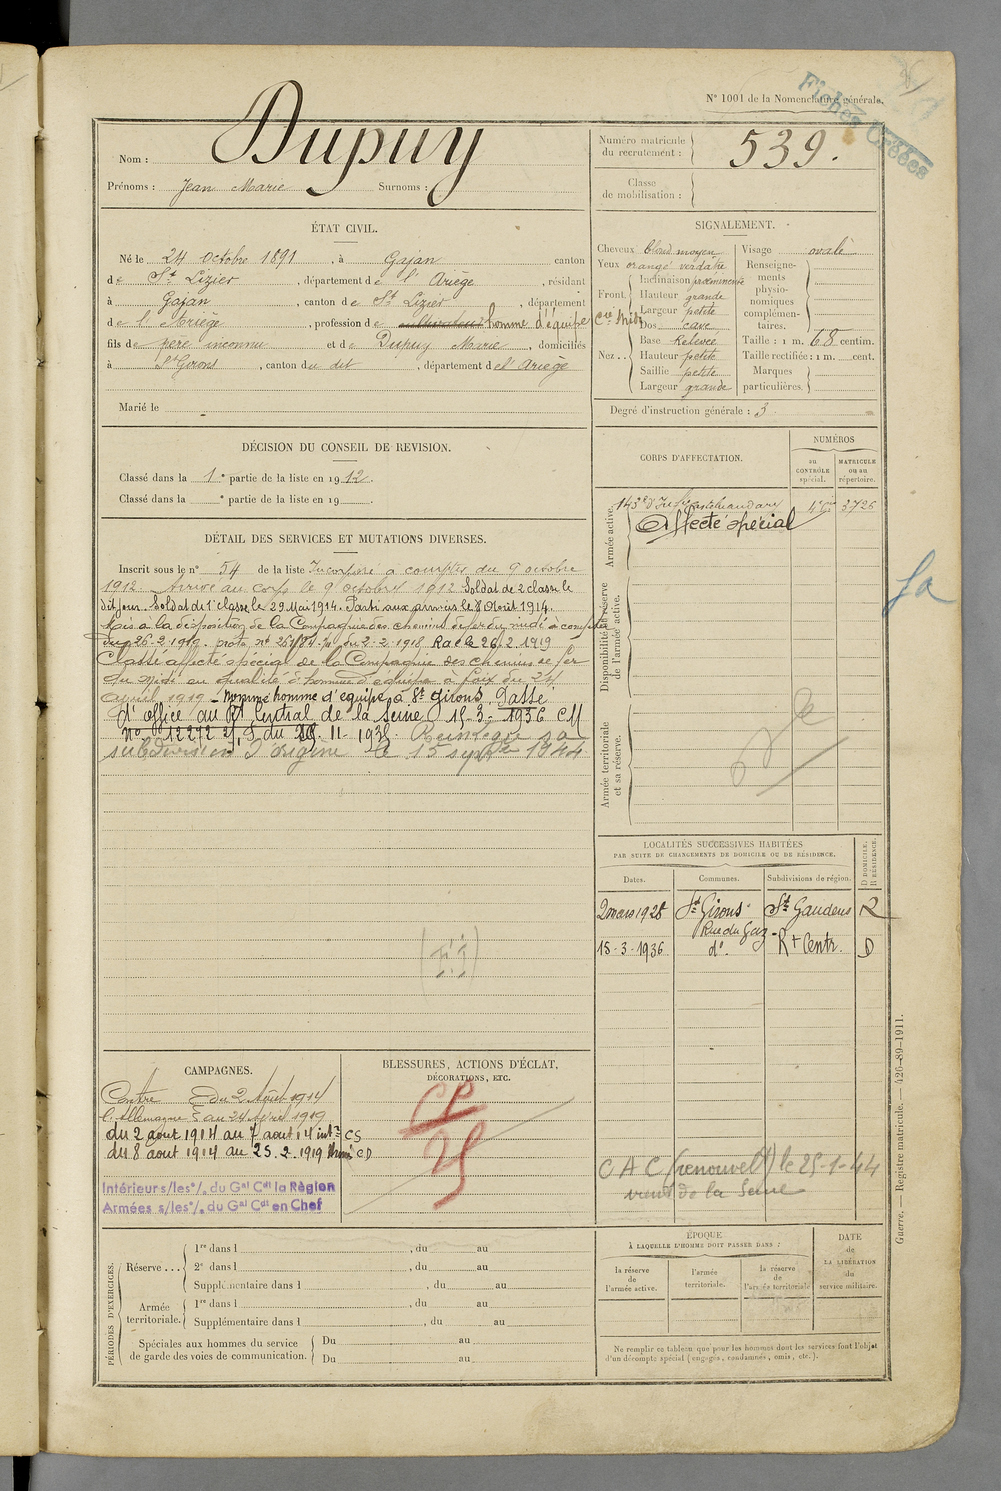 Fiches Créées
N° 1001 de la Nomenclature générale.
Nom : Dupuy
Prénoms : Jean Marie Surnoms :
Numéro matricule du recrutement : 539.
Classe de mobilisation :
ÉTAT CIVIL.
Né le 24 octobre 1891, à Gajan canton
de St Lizier, département de l'Ariège, résidant
à Gajan, canton de St Lizier, département
de l'Ariège, profession de cultivateur homme d'équipe Cie Midi
fils de père inconnu et de Dupuy Marie, domiciliés
à St Girons, canton du dit, département de l'Ariège
Marié le -
SIGNALEMENT.
Cheveux blond moyen
Yeux orangé verdâtre
Front Inclinaison proéminente
Hauteur grande
Largeur petite
Nez Dos cave
Base Relevée
Hauteur petite
Saillie petite
Largeur grande
Visage ovale
Renseignements physionomiques complémentaires.
Taille : 1 m. 68 centim.
Taille rectifiée : 1 m. cent.
Marques particulières.
Degré d'instruction générale : 3
DÉCISION DU CONSEIL DE REVISION.
Classé dans la 1e partie de la liste en 1912.
Classé dans la e partie de la liste en 19
CORPS D'AFFECTATION.
NUMÉROS
au CONTRÔLE spécial.
MATRICULE ou au répertoire.
Armée active.
143e d'Inf Castelnaudary 3726
Affecté spécial
Disponibilité et réserve de l'armée active.
Armée territoriale et sa réserve.
DÉTAIL DES SERVICES ET MUTATIONS DIVERSES.
Inscrit sous le n° 54 de la liste Incorporé à compter du 9 octobre
1912. Arrivé au corps le 9 octobre 1912 Soldat de 2 classe le
dit jour. Soldat de 1e classe le 29 Mai 1914. Parti aux armées le 8 Août 1914.
Mis à la disposition de la Compagnie des chemins de fer du midi à compter
du 26-2-1919. du 2-2-1918 Rac le 26.2.1919
Classé affecté spécial de la Compagnie des chemins de fer
du Midi en qualité d'homme d'équipe à Foix du 24
avril 1919 - nommé homme d'équipe à St Girons Passé
d'office au Rt Central de la Seine 15-3-1936 CM
n° 12272 du 11-1935. Réintégré sa
subdivision d'origine le 15 septbre 1944
LOCALITÉS SUCCESSIVES HABITÉES
PAR SUITE DE CHANGEMENTS DE DOMICILE OU DE RÉSIDENCE.
Dates. Communes. Subdivisions de région. D DOMICILE. R RÉSIDENCE.
2 mars 1928 St Girons St Gaudens R
Rue du Gaz
15-3-1936 d°. Rt Centr. D
CAC (renouvelt) le 25-1-44
vient de la Seine
CAMPAGNES.
Contre l'Allemagne du 2 Août 1914
au 24 Avril 1919
du 2 août 1914 au 7 août 14 intr CS
du 8 août 1914 au 25.2.1919 CD
Intérieur s/les °/. du Gal Cdt la Règion
Armées s/les °/. du Gal Cdt en Chef
BLESSURES, ACTIONS D'ÉCLAT,
DÉCORATIONS, ETC.
PÉRIODES D'EXERCICES.
Réserve...
1re dans l , du au
2e dans l , du au
Supplémentaire dans l , du au
Armée territoriale.
1re dans l , du au
Supplémentaire dans l , du au
Spéciales aux hommes du service de garde des voies de communication.
Du au
Du au
ÉPOQUE
À LAQUELLE L'HOMME DOIT PASSER DANS :
la réserve de l'armée active.
l'armée territoriale.
la réserve de l'armée territoriale
DATE de LA LIBÉRATION du service militaire.
Ne remplir ce tableau que pour les hommes dont les services font l'objet
d'un décompte spécial (engagés, condamnés, omis, etc.).
Guerre. — Registre matricule. — 426-89-1911.